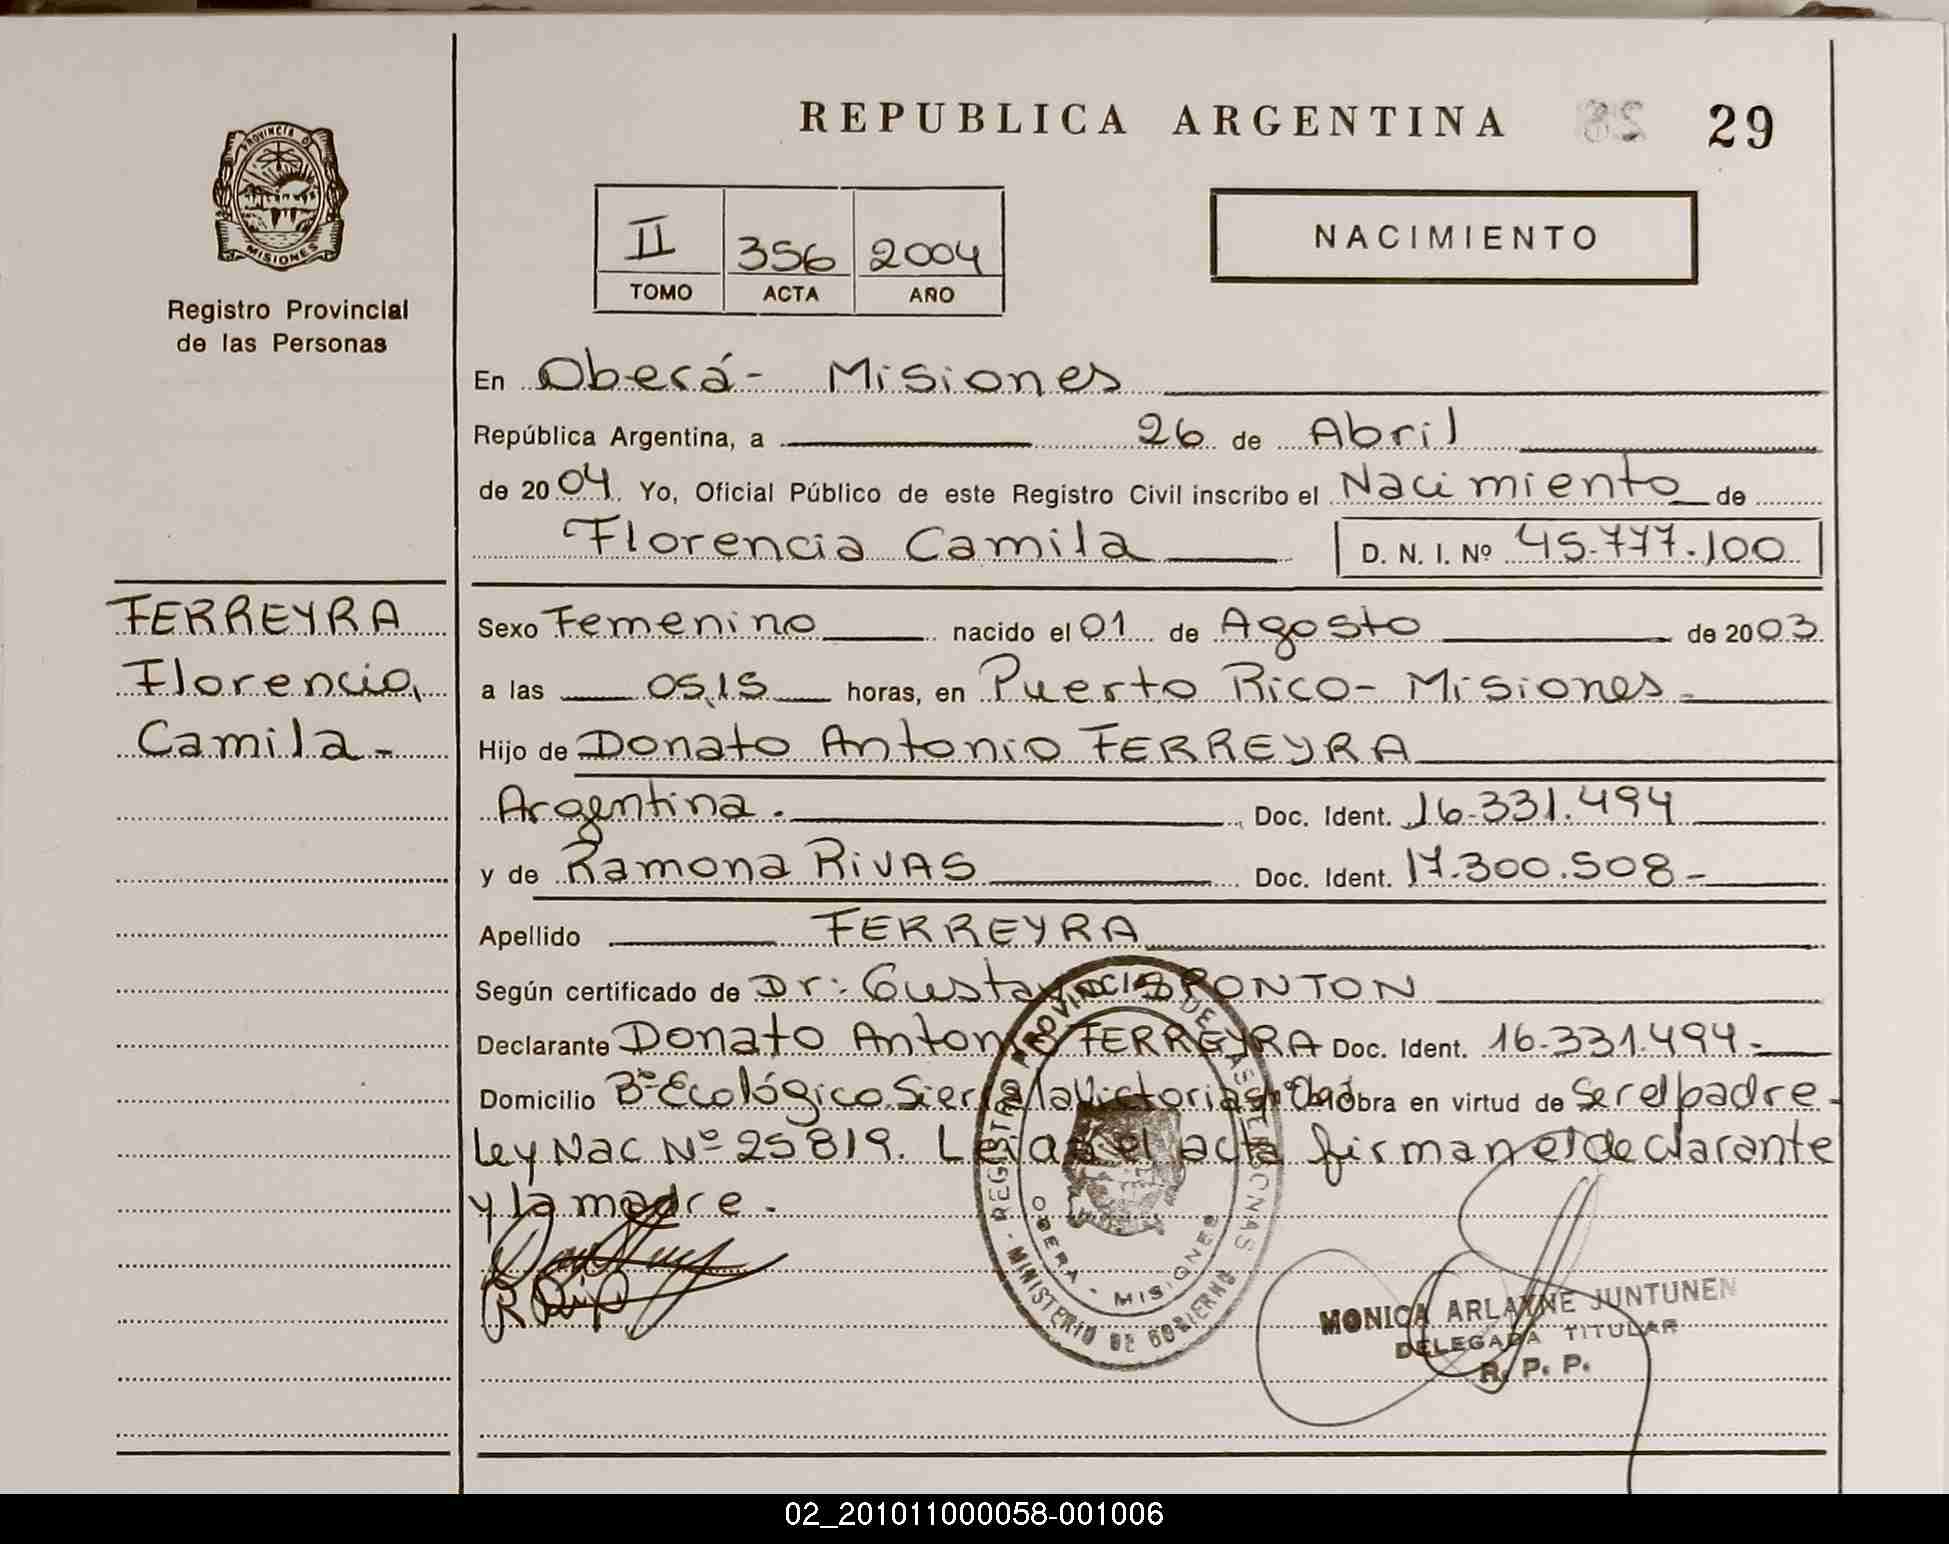 REPUBLICA ARGENTINA
29
PROVINCIA D
MISIONES
Registro Provincial
de las Personas
II 356 2004
TOMO ACTA AÑO
NACIMIENTO
En Oberá- Misiones
República Argentina, a 26 de Abril
de 2004 Yo, Oficial Público de este Registro Civil inscribo el Nacimiento de
Florencia Camila D. N. I. Nº 45.777.100
FERREYRA
Florencia
Camila-
Sexo Femenino nacido el 01 de Agosto de 2003
a las 05,15 horas, en Puerto Rico- Misiones-
Hijo de Donato Antonio FERREYRA
Argentina. Doc. Ident. 16.331.494
y de Ramona RIVAS Doc. Ident. 17.300.508-
Apellido FERREYRA
Según certificado de Dr: Gustavo PONTON
Declarante Donato Antonio FERREYRA Doc. Ident. 16.331.494-
Domicilio Bº Ecológico Sierra la Victoria obra en virtud de ser el padre-
Ley Nac Nº 25819. Leida el acta firman el declarante
y la madre.
REGISTRO PROVINCIAL DE LAS PERSONAS
OBERA - MISIONES
- MINISTERIO DE GOBIERNO
MONICA ARLAYNE JUNTUNEN
DELEGADA TITULAR
R. P. P.
02_201011000058-001006